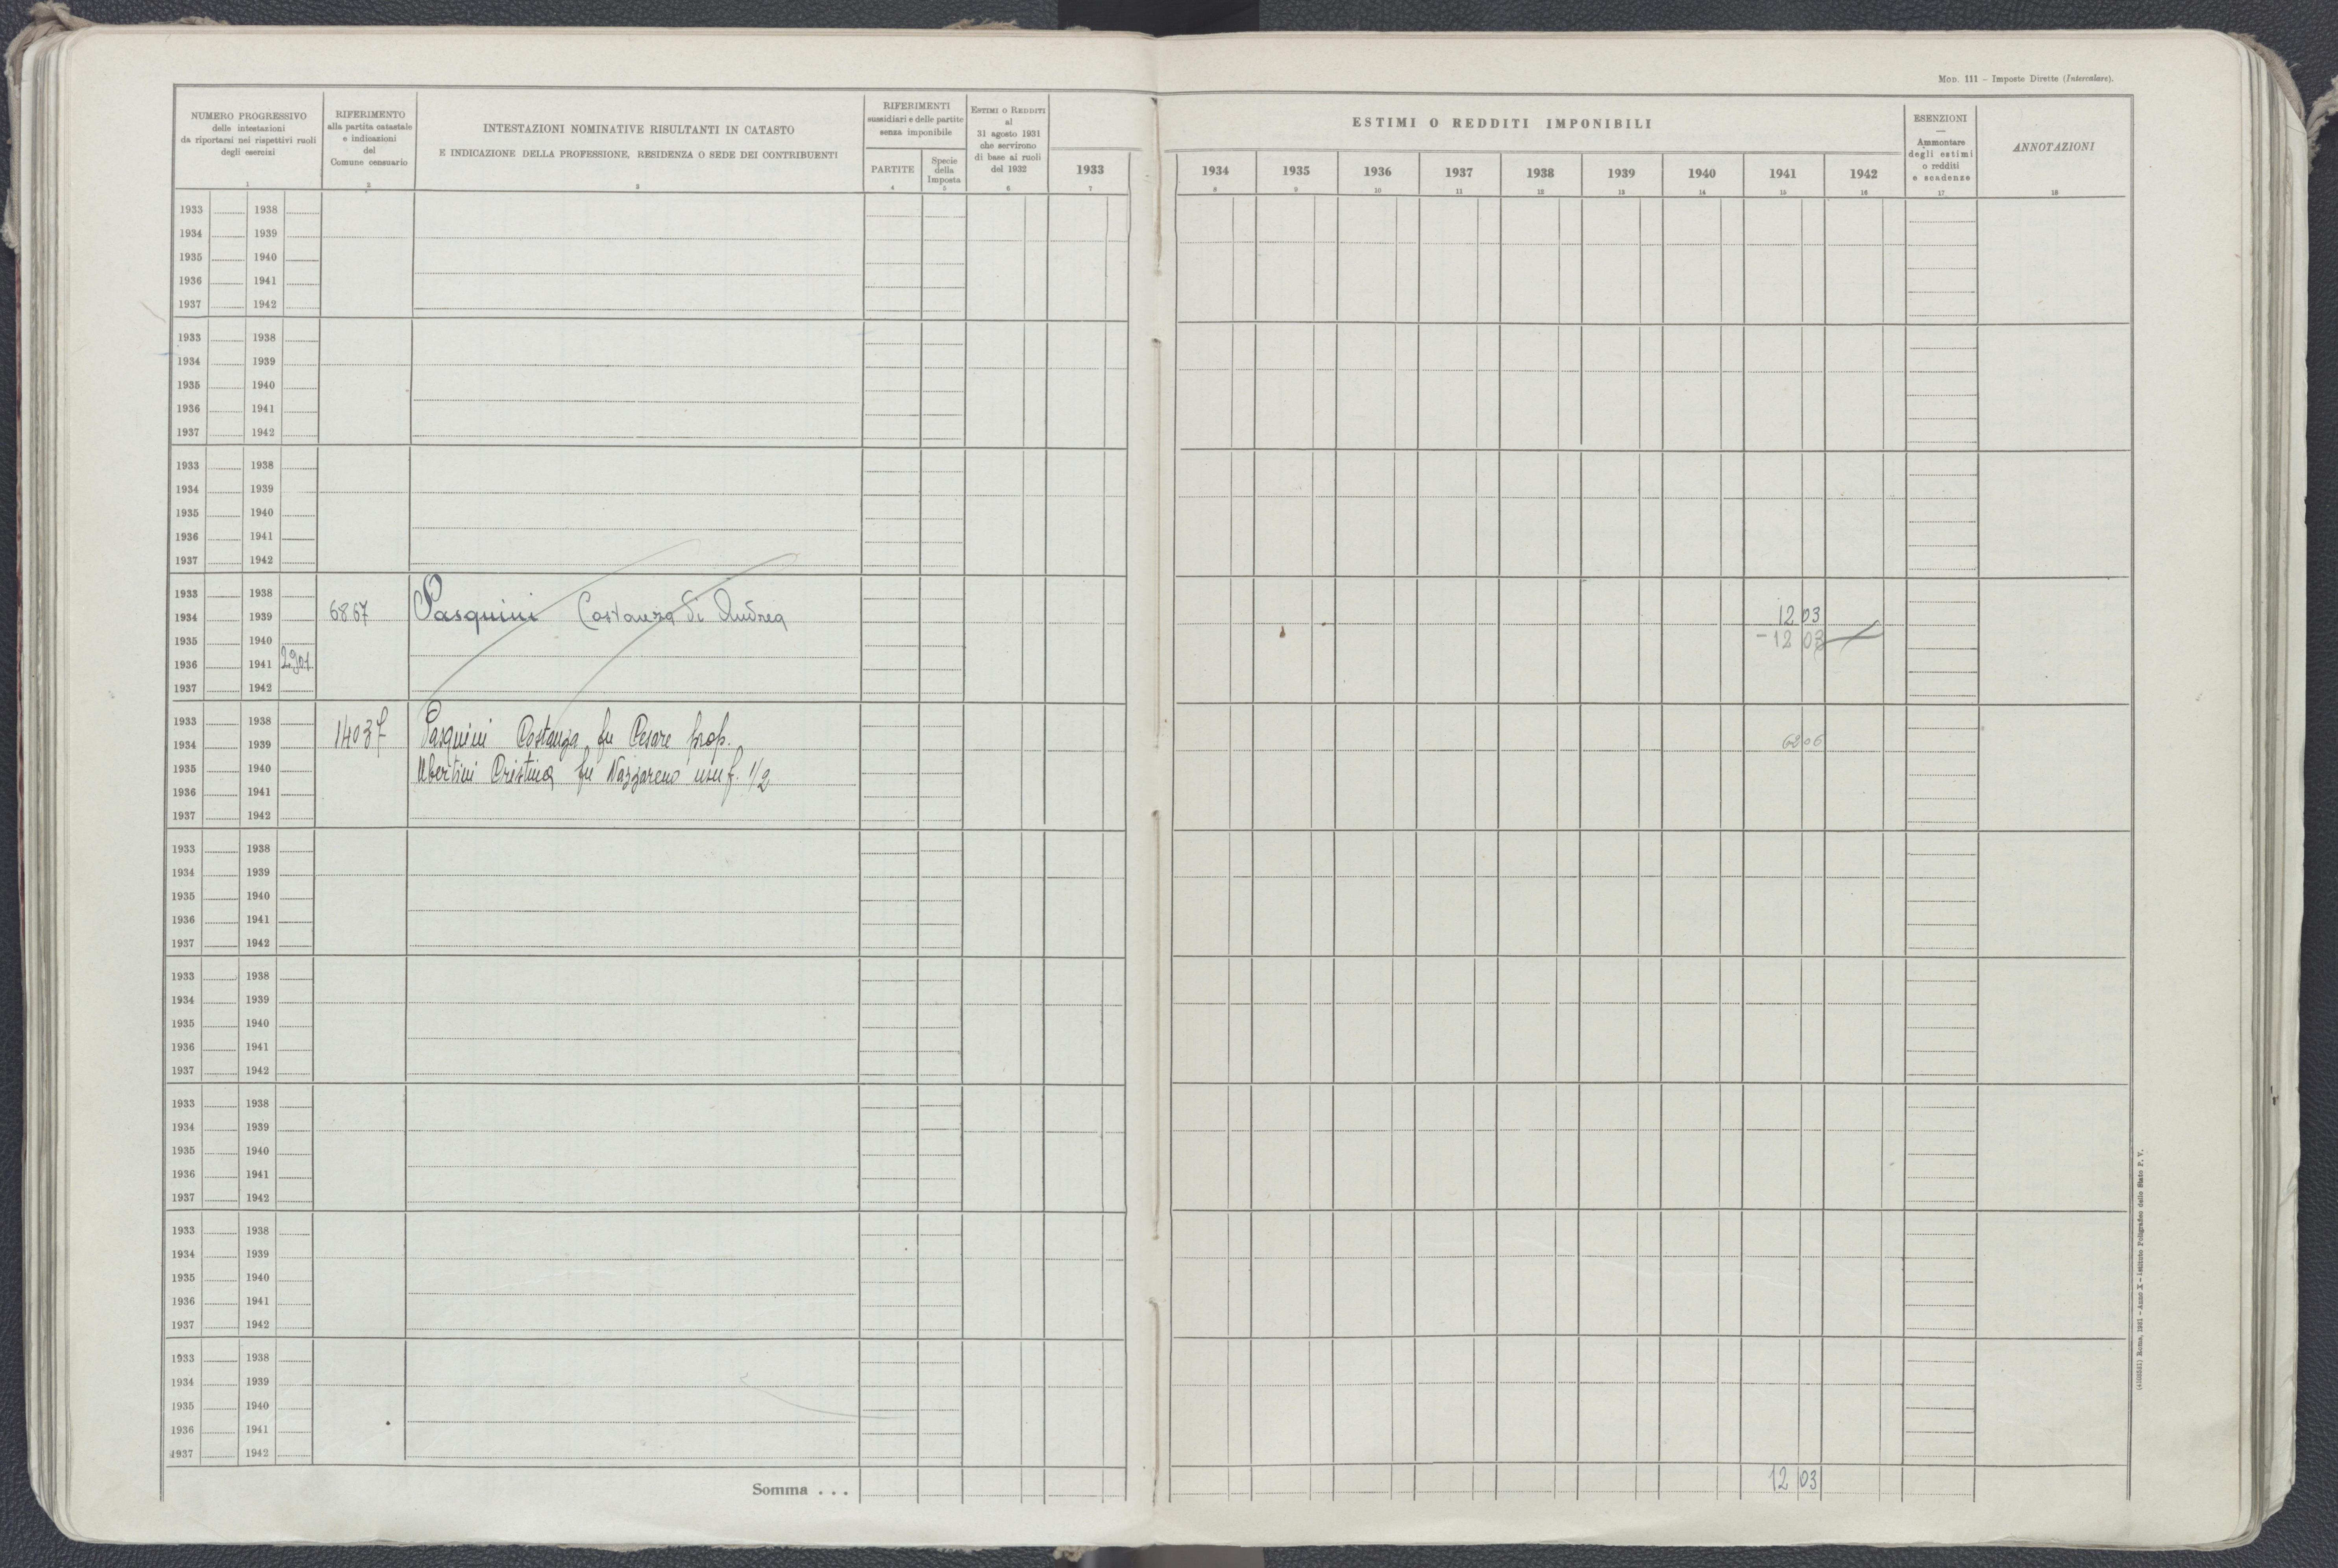 Mod. 111 – Imposte Dirette (Intercalare).
NUMERO PROGRESSIVO
delle intestazioni
da riportarsi nei rispettivi ruoli
degli esercizi
1
RIFERIMENTO
alla partita catastale
e indicazioni
del
Comune censuario
2
INTESTAZIONI NOMINATIVE RISULTANTI IN CATASTO
E INDICAZIONE DELLA PROFESSIONE, RESIDENZA O SEDE DEI CONTRIBUENTI
3
RIFERIMENTI
sussidiari e delle partite
senza imponibile
PARTITE
4
Specie
della
Imposta
5
Estimi o Redditi
al
31 agosto 1931
che servirono
di base ai ruoli
del 1932
6
1933
7
ESTIMI O REDDITI IMPONIBILI
1934 1935 1936 1937 1938 1939 1940 1941 1942
8 9 10 11 12 13 14 15 16
ESENZIONI
—
Ammontare
degli estimi
o redditi
e scadenze
17
ANNOTAZIONI
18
1933 1938
1934 1939
1935 1940
1936 1941
1937 1942
1933 1938
1934 1939
1935 1940
1936 1941
1937 1942
1933 1938
1934 1939
1935 1940
1936 1941
1937 1942
1933 1938
1934 1939 6867 Pasquini Costanza di Andrea 12 03
1935 1940 -12 03
1936 1941 2901
1937 1942
1933 1938
1934 1939 14037 Pasquini Costanza fu Cesare prop. 62 06
1935 1940 Ubertini Cristina fu Nazzareno usuf. 1/2
1936 1941
1937 1942
1933 1938
1934 1939
1935 1940
1936 1941
1937 1942
1933 1938
1934 1939
1935 1940
1936 1941
1937 1942
1933 1938
1934 1939
1935 1940
1936 1941
1937 1942
1933 1938
1934 1939
1935 1940
1936 1941
1937 1942
1933 1938
1934 1939
1935 1940
1936 1941
1937 1942
Somma . . . 12 03
Roma, 1931 – Anno X – Istituto Poligrafico dello Stato P. V.